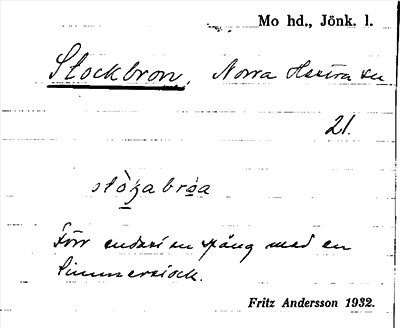 Mo hd., Jönk. l.
Stockbron, Norra Hestra sn
21.
stòg̣abrȯa
Förr endast en spång med en
timmerstock.
Fritz Andersson 1932.